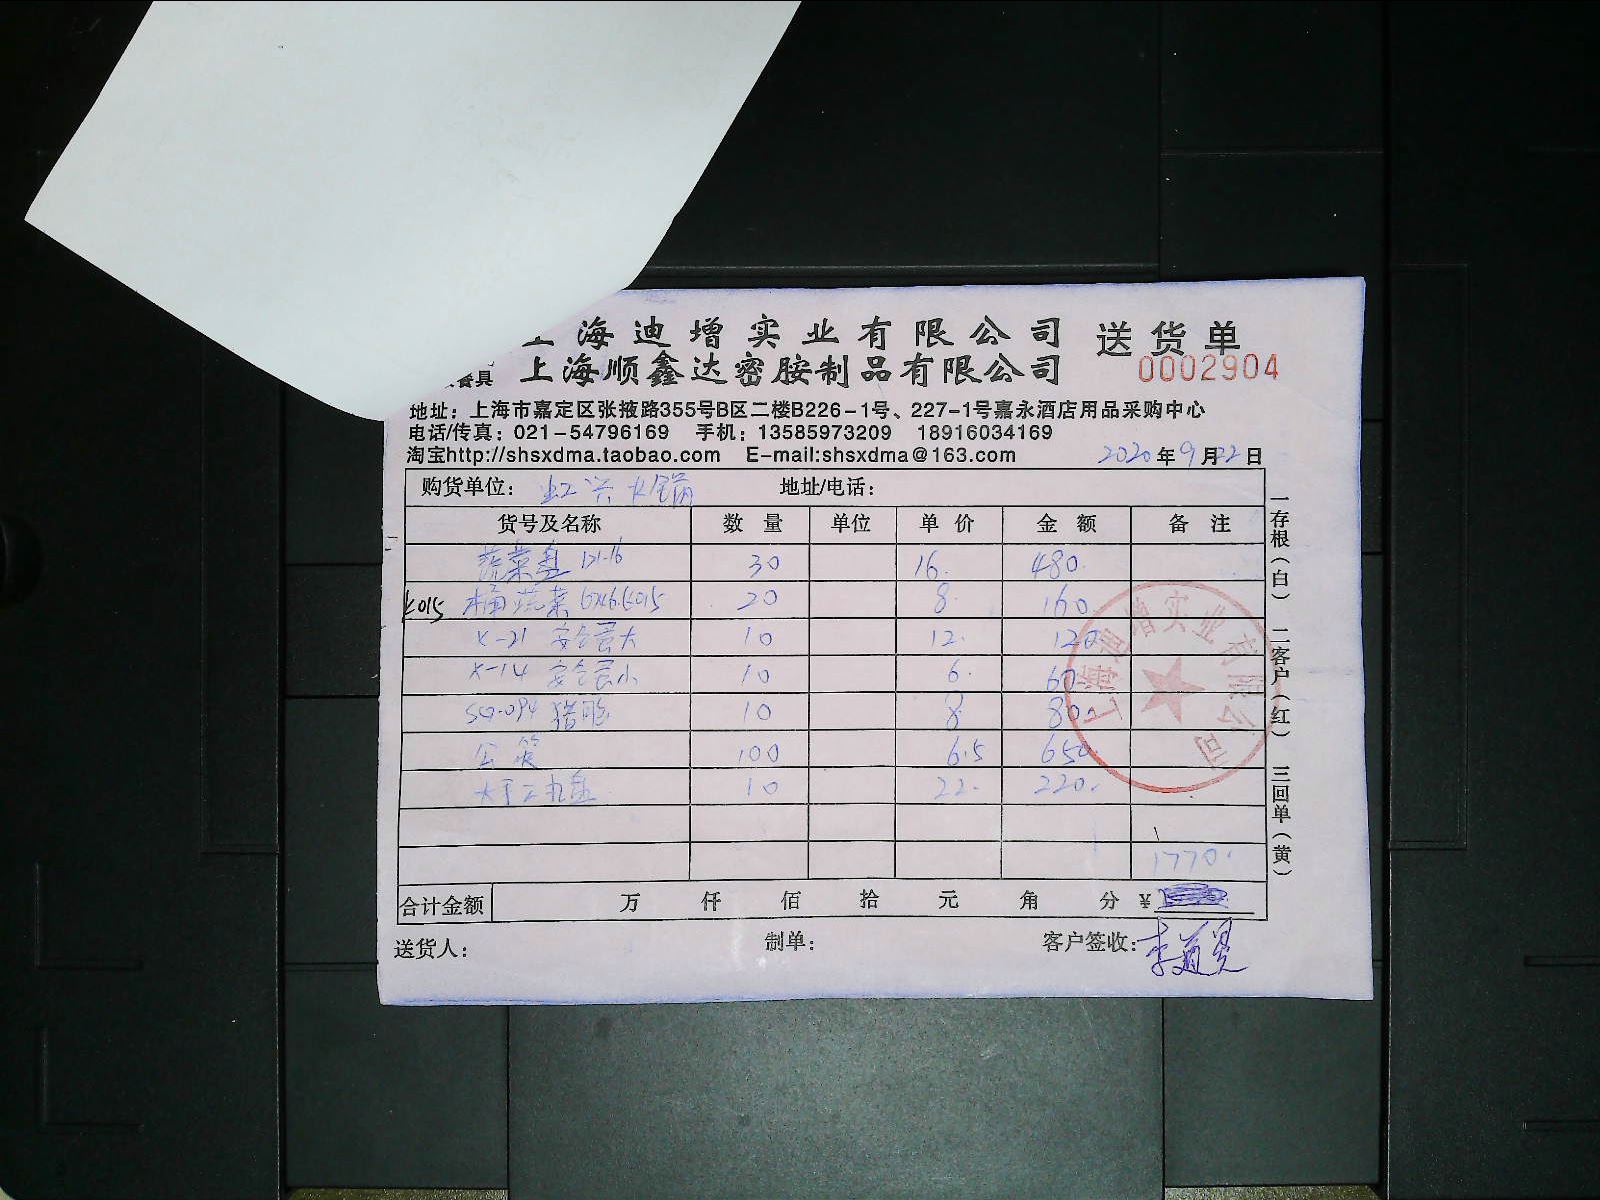 上海迪增实业有限公司 送货单
餐具 上海顺鑫达密胺制品有限公司 0002904
地址：上海市嘉定区张掖路355号B区二楼B226-1号、227-1号嘉永酒店用品采购中心
电话/传真：021-54796169 手机：13585973209 18916034169
淘宝http://shsxdma.taobao.com E-mail:shsxdma@163.com 2020年9月22日
购货单位： 火锅 地址/电话：
货号及名称 数量 单位 单价 金额 备注
蔬菜盘 30 16. 480.
K015 桶蔬菜 K015 20 8. 160.
X-21 大 10 12. 120
X-14 小 10 6. 60.
10 8. 80.
公筷 100 6.5 650
10 22. 220.
1770.
合计金额 万 仟 佰 拾 元 角 分 ¥
送货人： 制单： 客户签收：
一存根（白） 二客户（红） 三回单（黄）
上海迪增实业有限公司